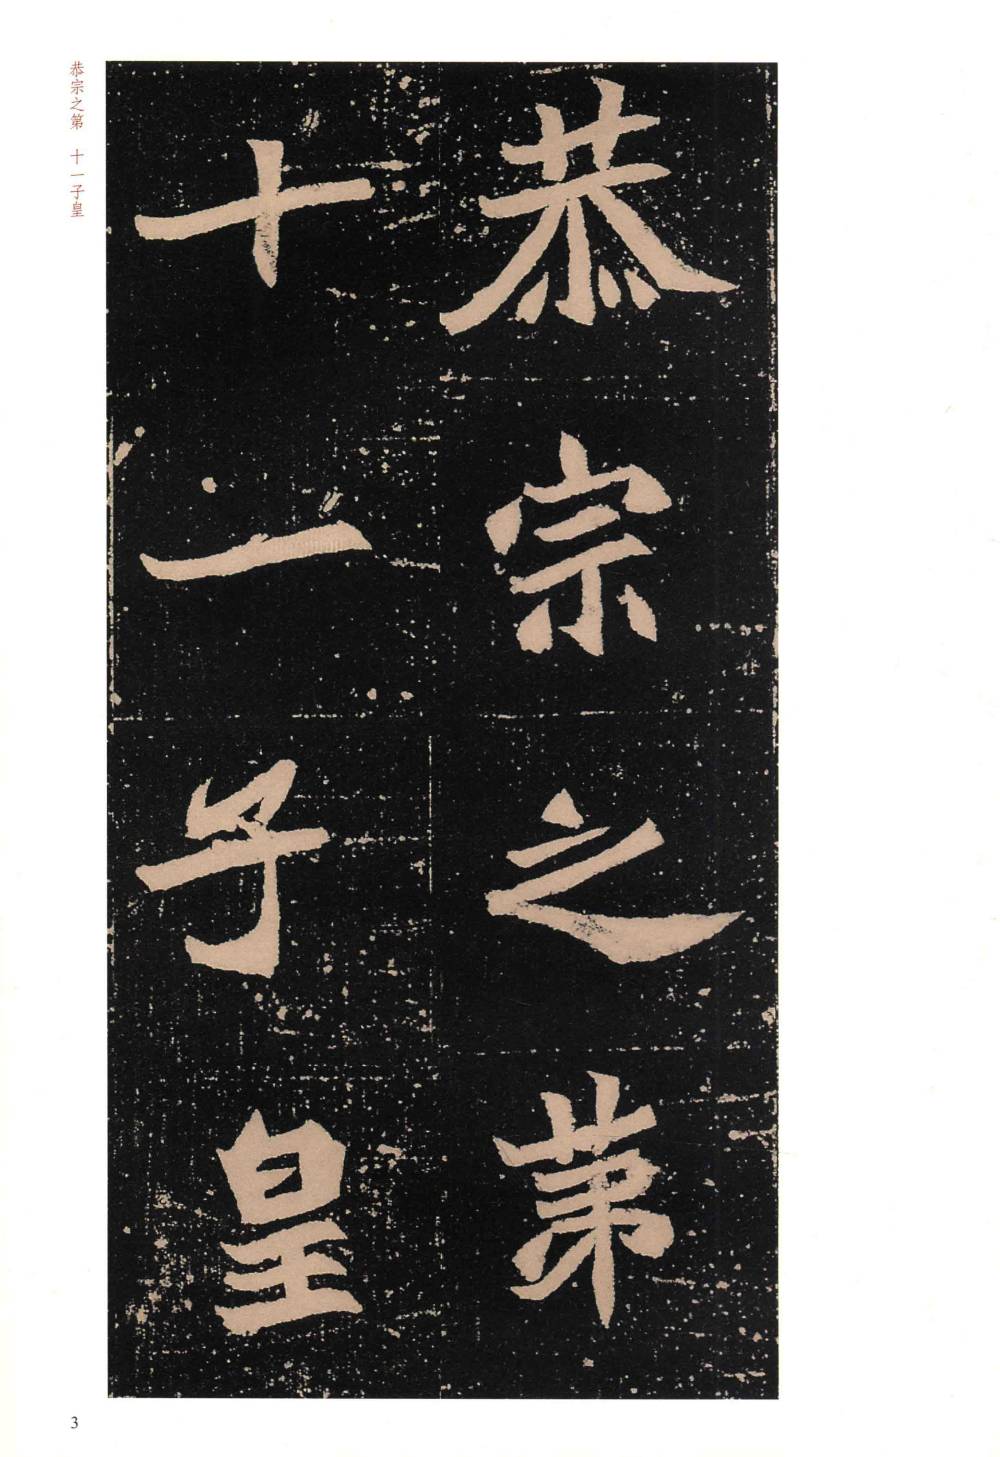 恭宗之第
十一子皇
恭宗之第 十一子皇
3